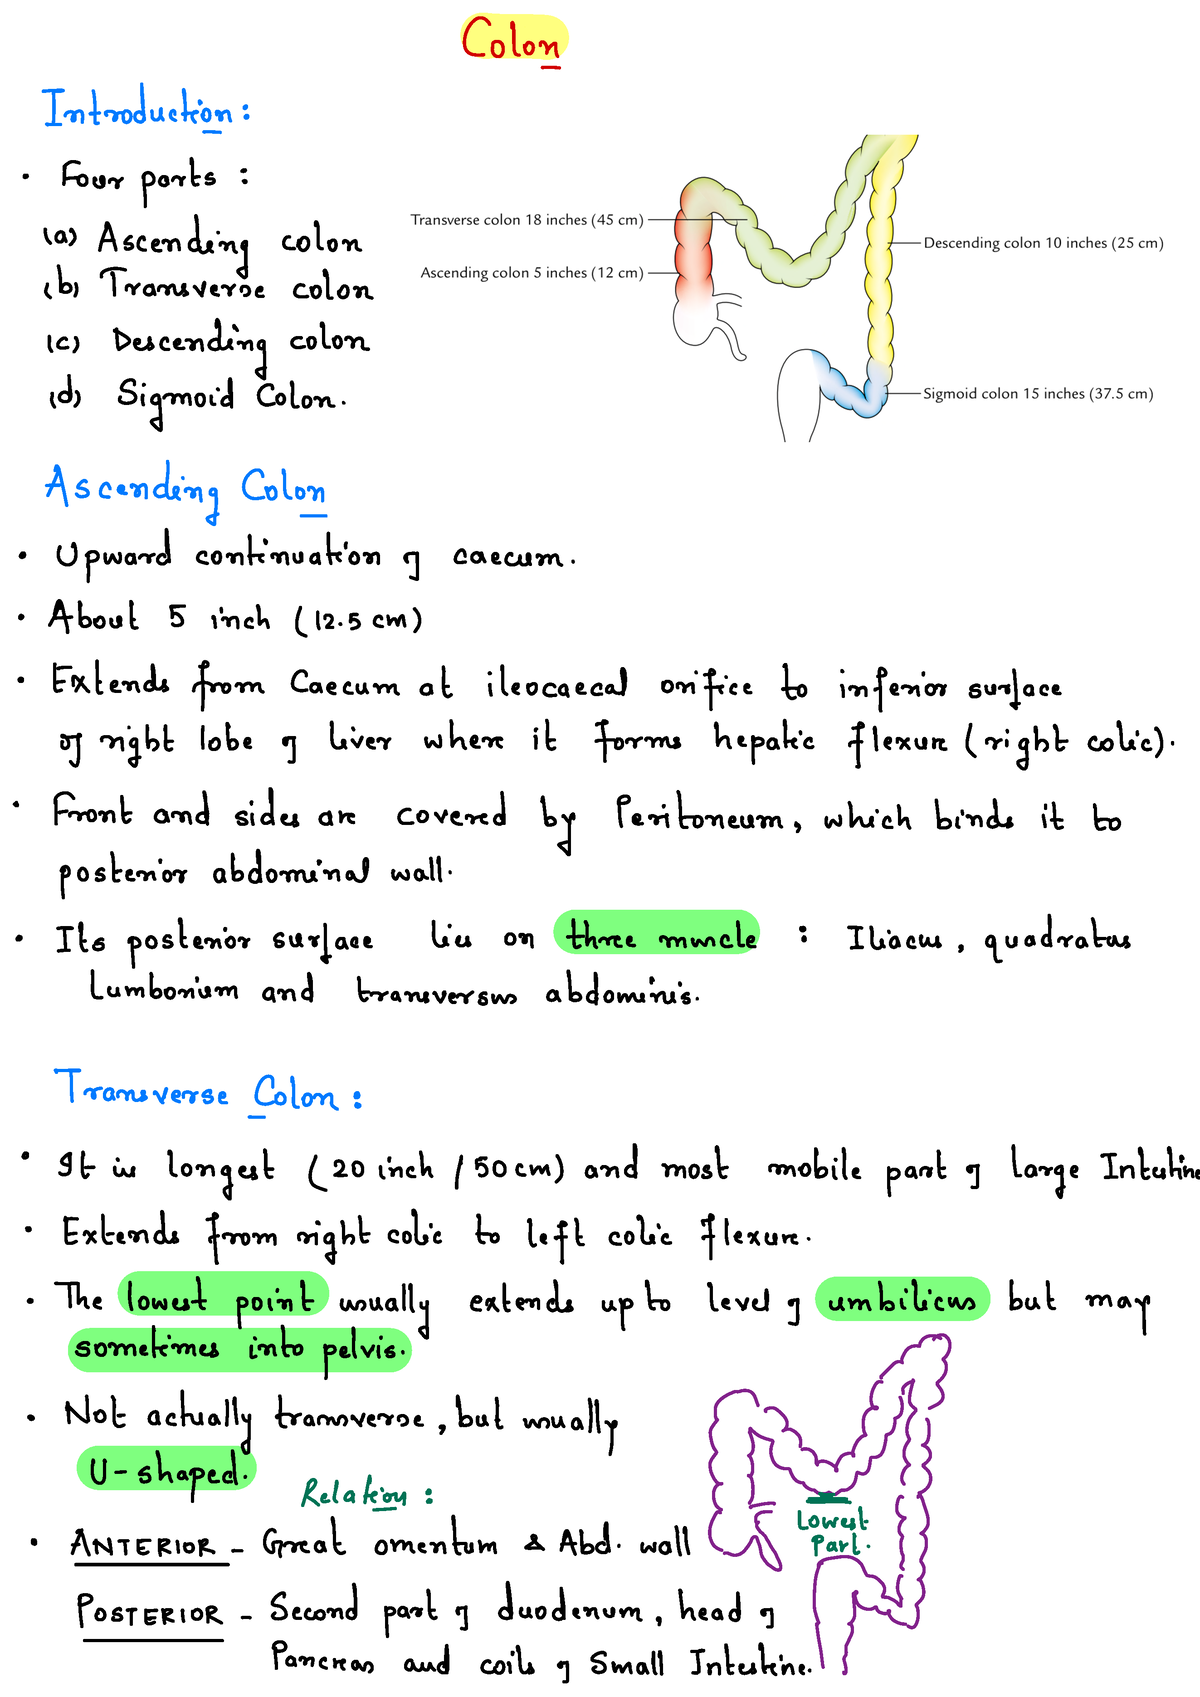 Colon
Introduction:
• Four parts :
(a) Ascending colon
(b) Transverse colon
(c) Descending colon
(d) Sigmoid Colon.
Transverse colon 18 inches (45 cm)
Ascending colon 5 inches (12 cm)
Descending colon 10 inches (25 cm)
Sigmoid colon 15 inches (37.5 cm)
Ascending Colon
• Upward continuation of caecum.
• About 5 inch (12.5 cm)
• Extends from Caecum at ileocaecal orifice to inferior surface
of right lobe of liver where it forms hepatic flexure (right colic).
• Front and sides are covered by Peritoneum, which binds it to
posterior abdominal wall.
• Its posterior surface lies on three muscle : Iliacus, quadratus
Lumborium and transversus abdominis.
Transverse Colon :
• It is longest (20 inch / 50 cm) and most mobile part of large Intestine
• Extends from right colic to left colic flexure.
• The lowest point usually extends up to level of umbilicus but may
sometimes into pelvis.
• Not actually transverse, but usually
U-shaped.
Relation :
• ANTERIOR - Great omentum & Abd. wall
POSTERIOR - Second part of duodenum, head of
Pancreas and coils of Small Intestine.
Lowest
Part.